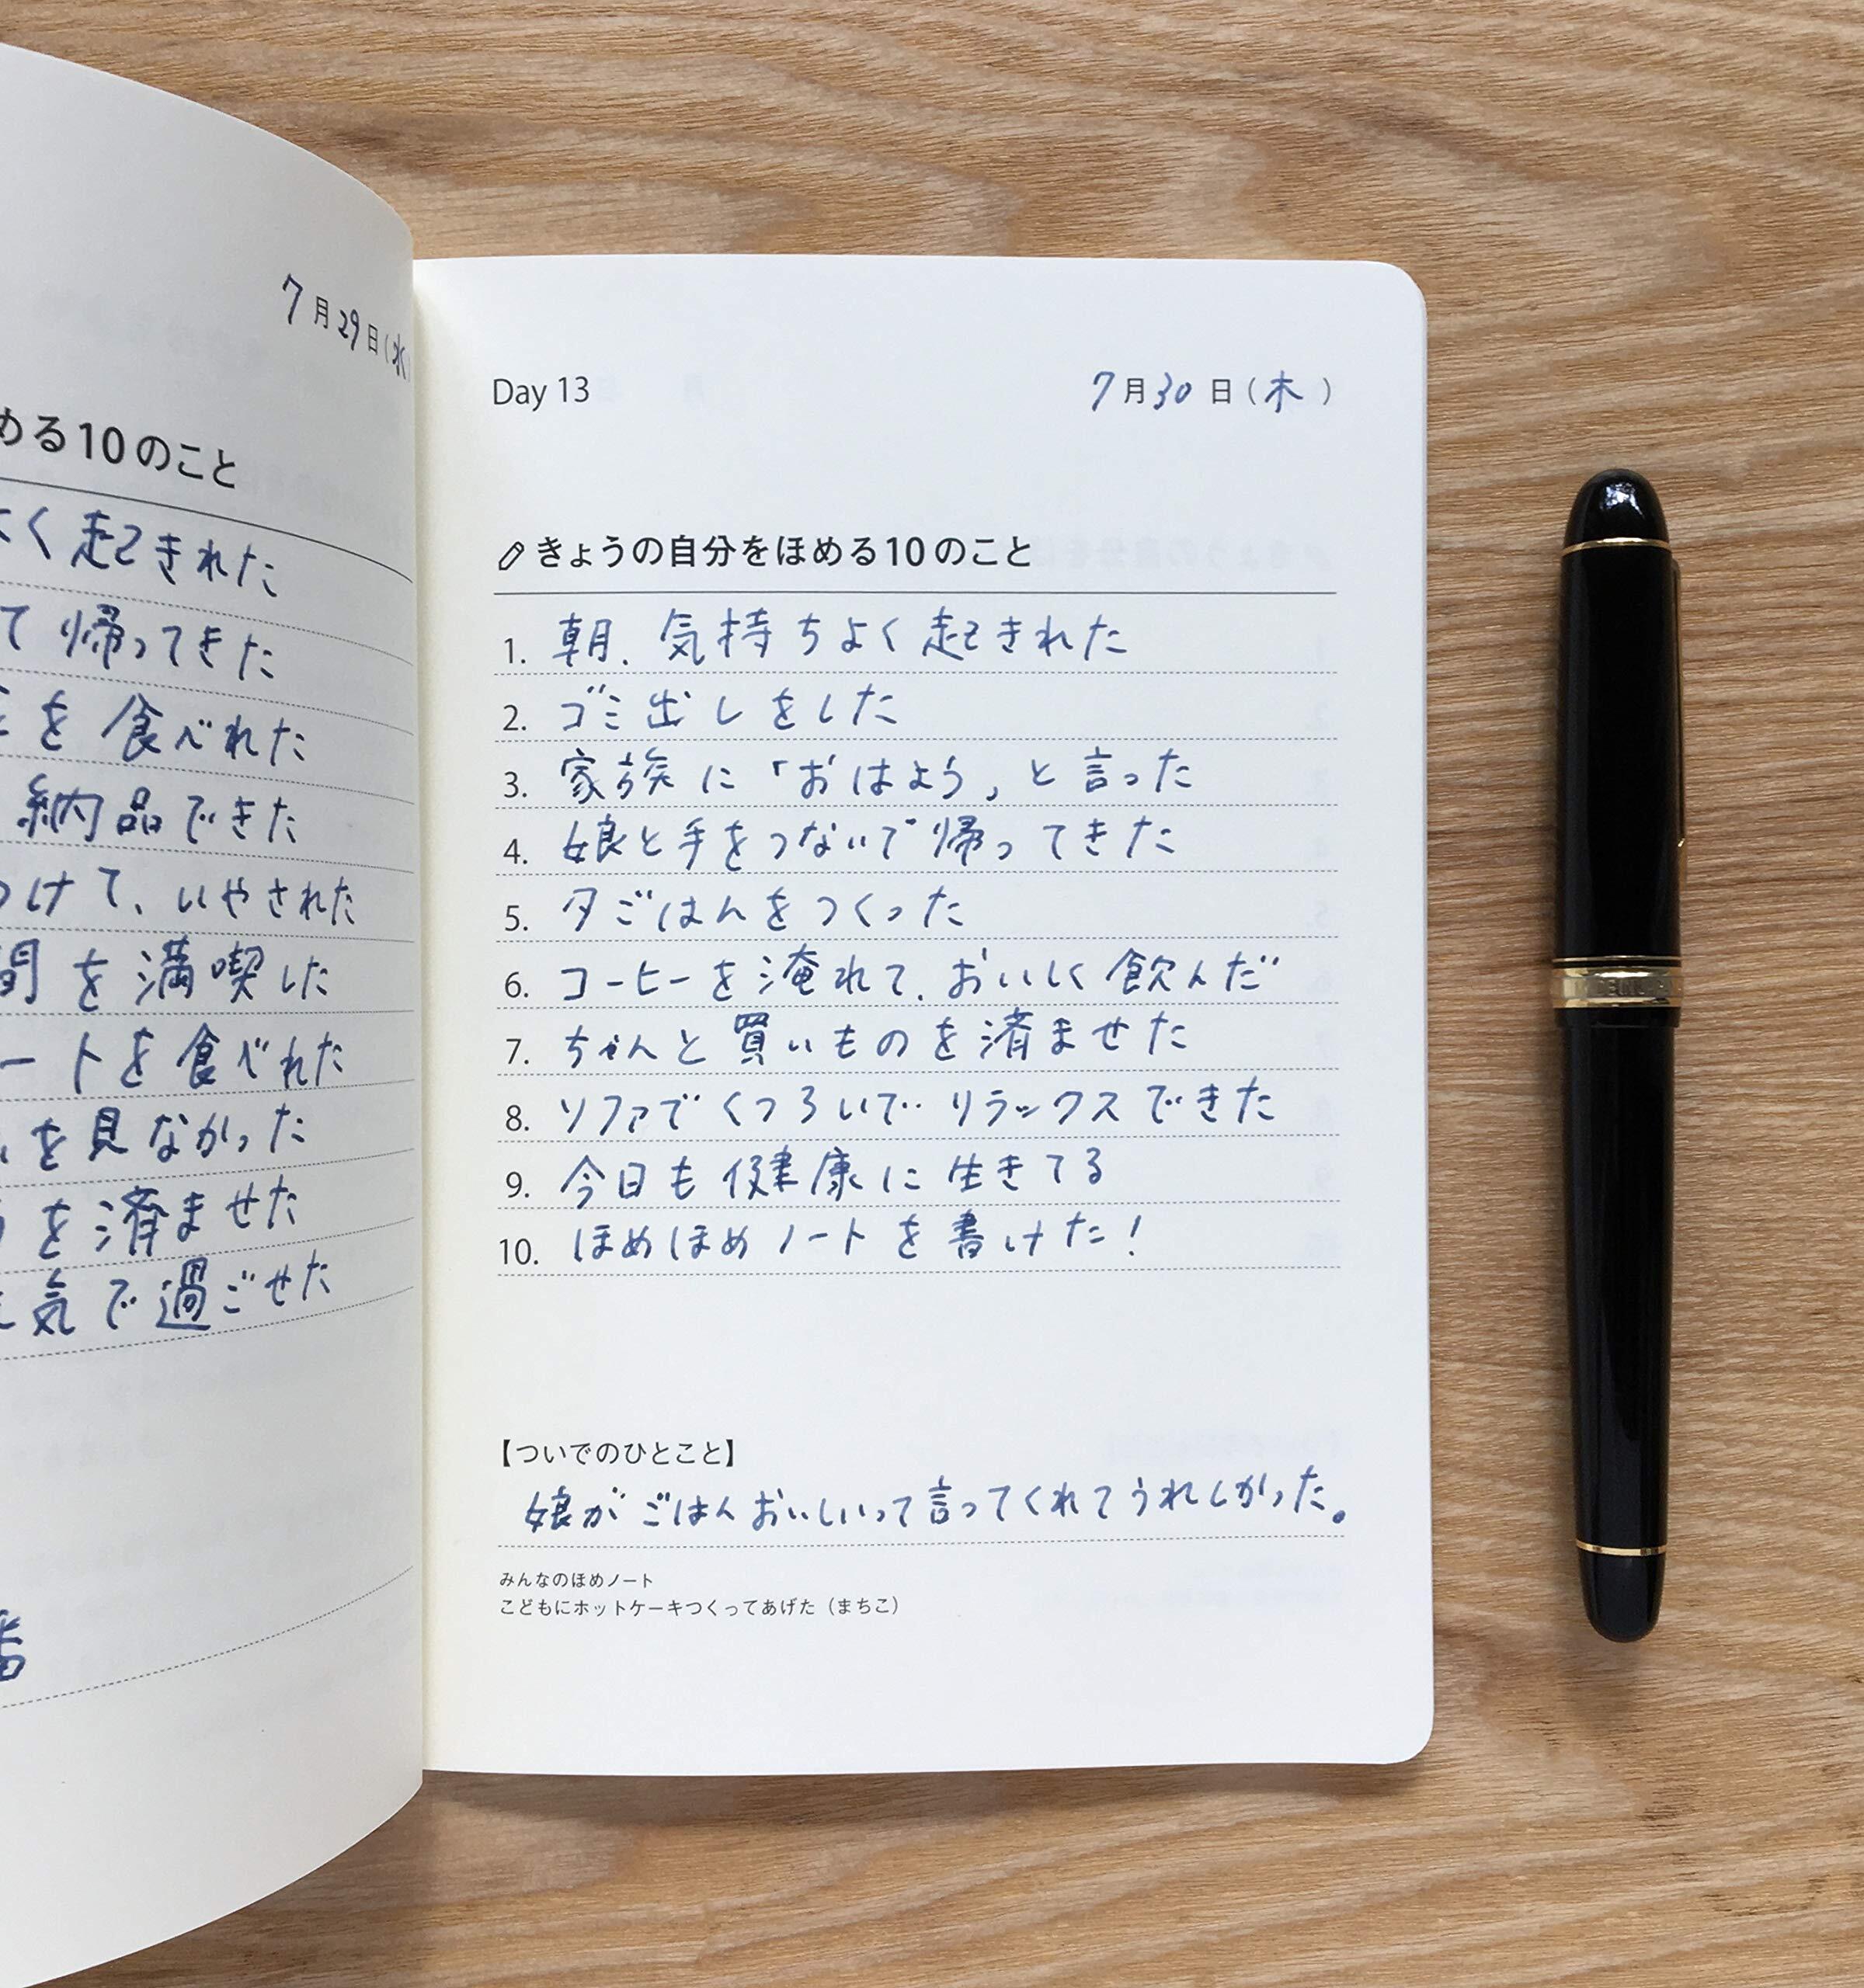 7月29日(水)
める10のこと
よく起きれた
て帰ってきた
を食べれた
納品できた
つけて、いやされた
間を満喫した
ートを食べれた
を見なかった
を済ませた
気で過ごせた
番
Day 13
7月30日(木)
きょうの自分をほめる10のこと
1. 朝、気持ちよく起きれた
2. ゴミ出しをした
3. 家族に「おはよう」と言った
4. 娘と手をつないで帰ってきた
5. 夕ごはんをつくった
6. コーヒーを淹れて、おいしく飲んだ
7. ちゃんと買いものを済ませた
8. ソファでくつろいで‥リラックスできた
9. 今日も健康に生きてる
10. ほめほめノートを書けた!
【ついでのひとこと】
娘がごはんおいしいって言ってくれてうれしかった。
みんなのほめノート
こどもにホットケーキつくってあげた(まちこ)